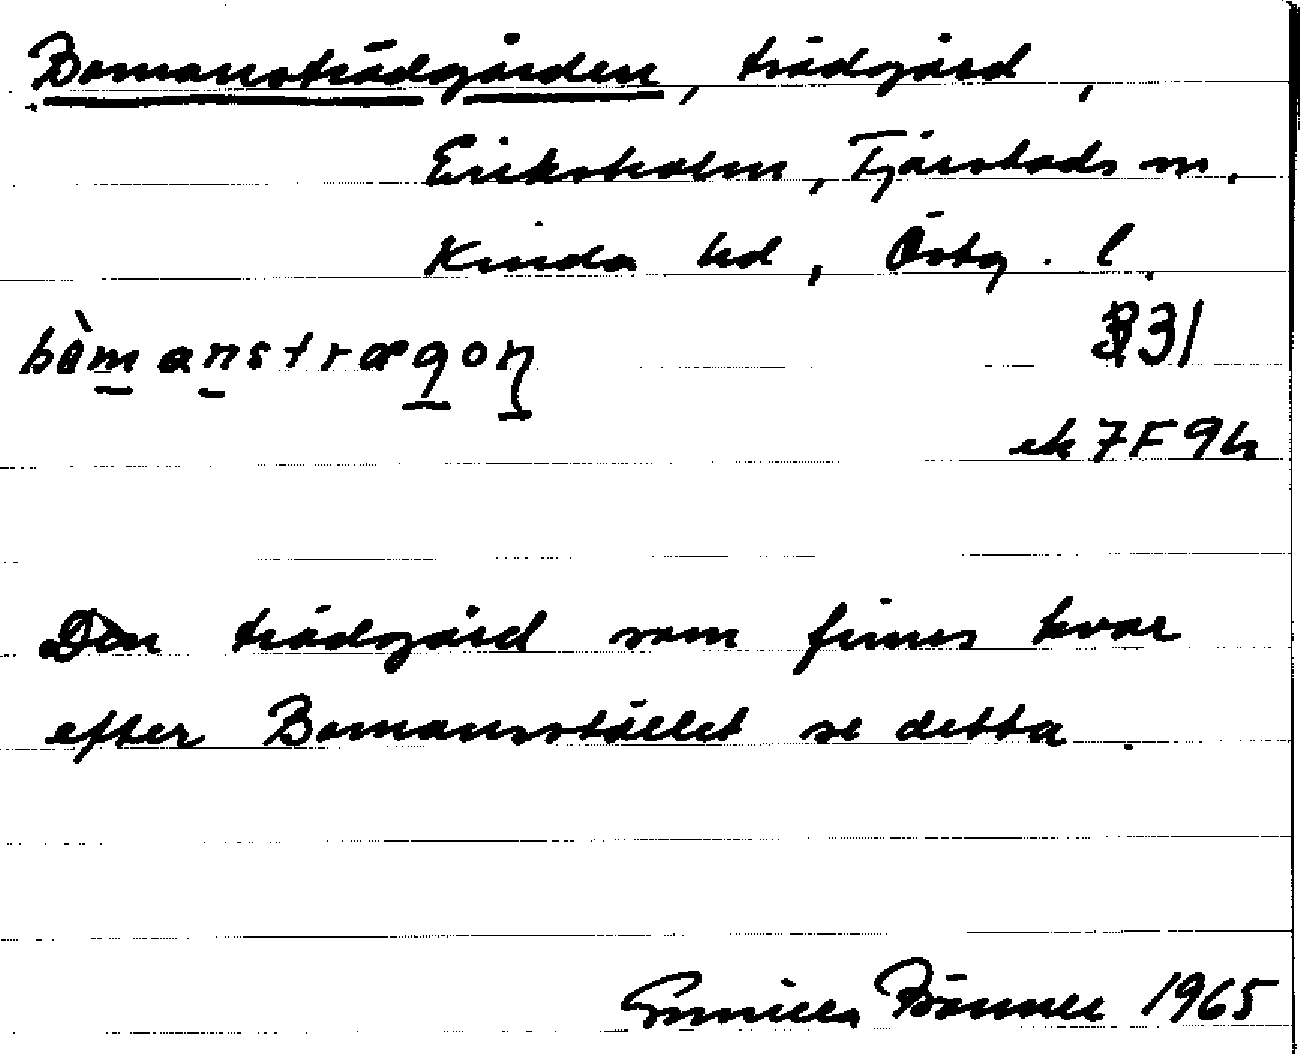 Bomansträdgården, trädgård,
Eriksholm, Tjärstads sn.
Kinda hd, Östg. l.
bòmanstrægoṇ 31
ek 7F9h
Den trädgård som finns kvar
efter Bomansstället se detta.
Gunilla 1965